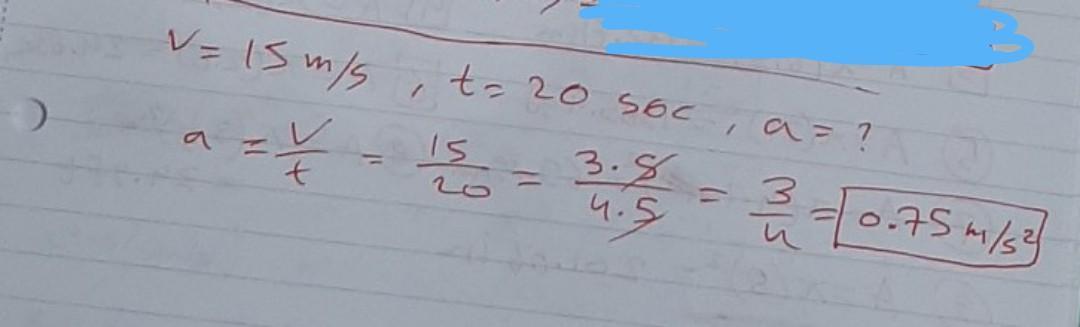 V = 15 m/s , t = 20 sec , a = ?
a = V/t = 15/20 = 3.5/4.5 = 3/4 = 0.75 m/s²